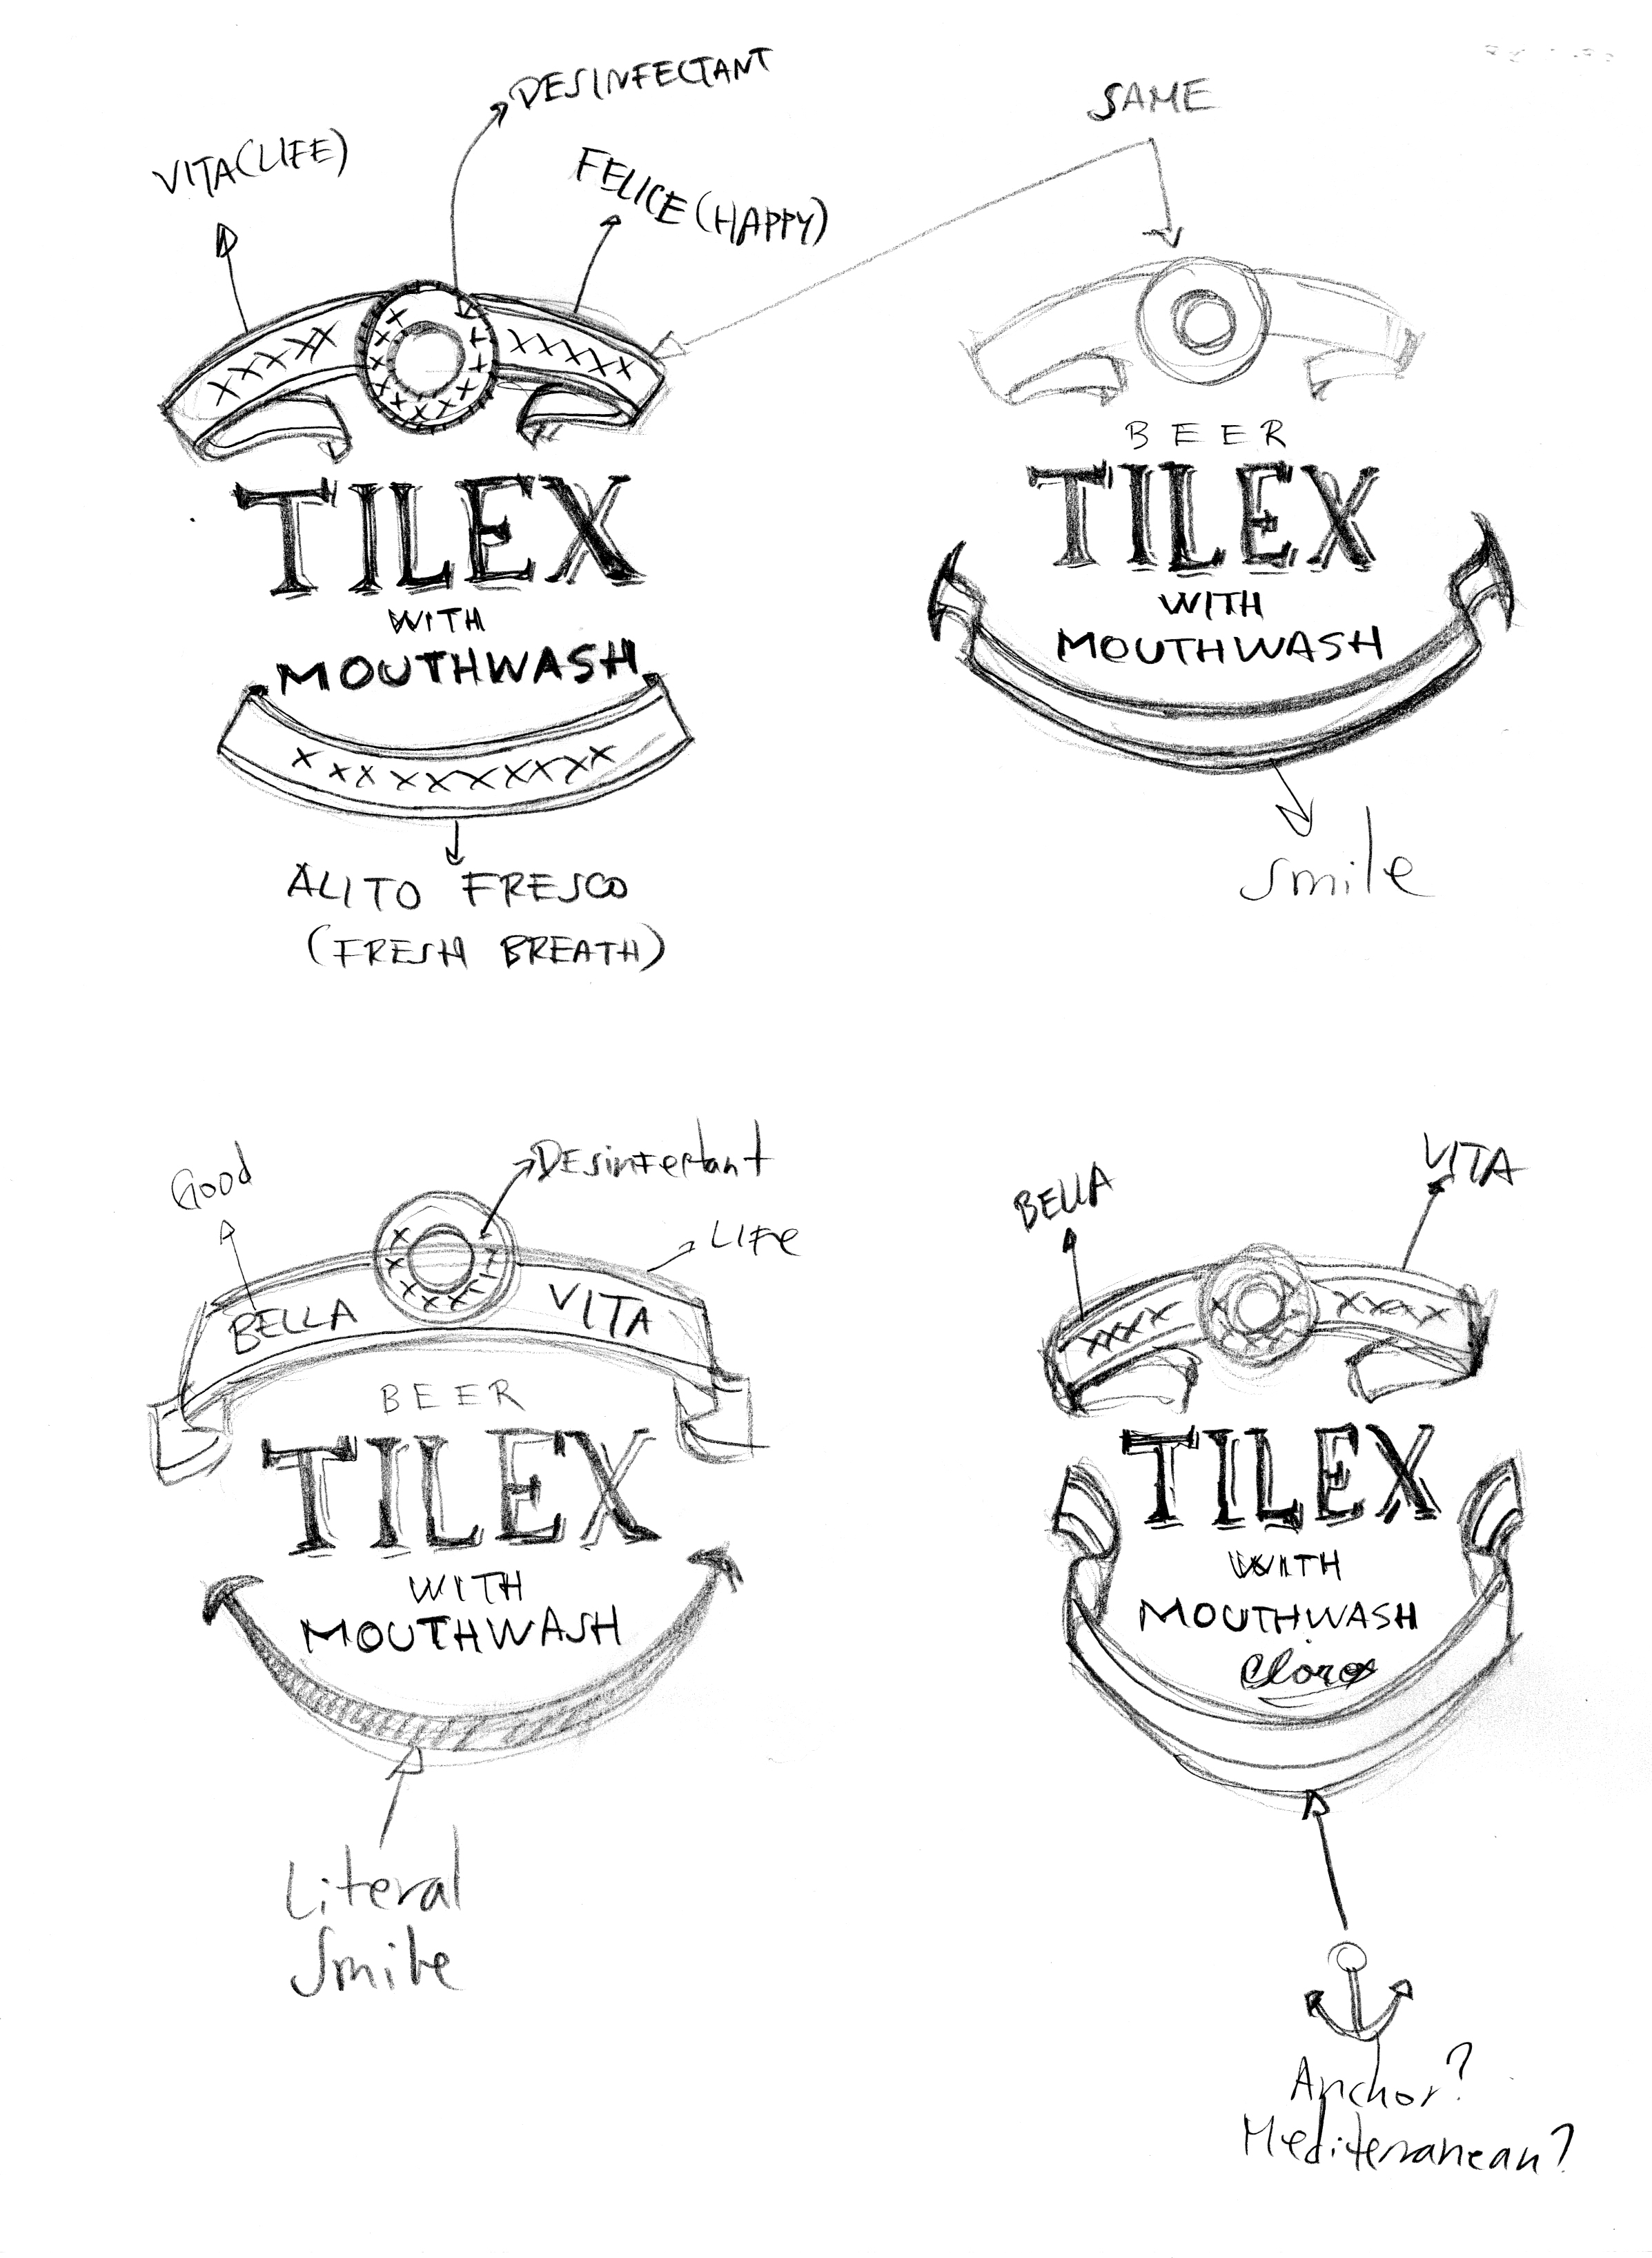 DESINFECTANT
VITA (LIFE)
FELICE (HAPPY)
XXXXX
XXXXX
TILEX
WITH
MOUTHWASH
XXXXXXXXXX
ALITO FRESCO
(FRESH BREATH)
SAME
BEER
TILEX
WITH
MOUTHWASH
Smile
Good
DEsinFectant
LIFe
BELLA
VITA
BEER
TILEX
WITH
MOUTHWASH
Literal
Smile
BELLA
VITA
XXXX
XXXX
TILEX
WITH
MOUTHWASH
Clorox
Anchor?
Mediterranean?